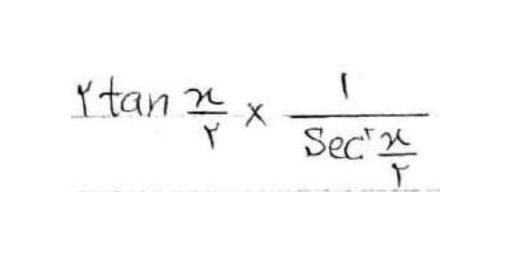 ۲ tan x/۲ × ۱/Sec^۲ x/۲